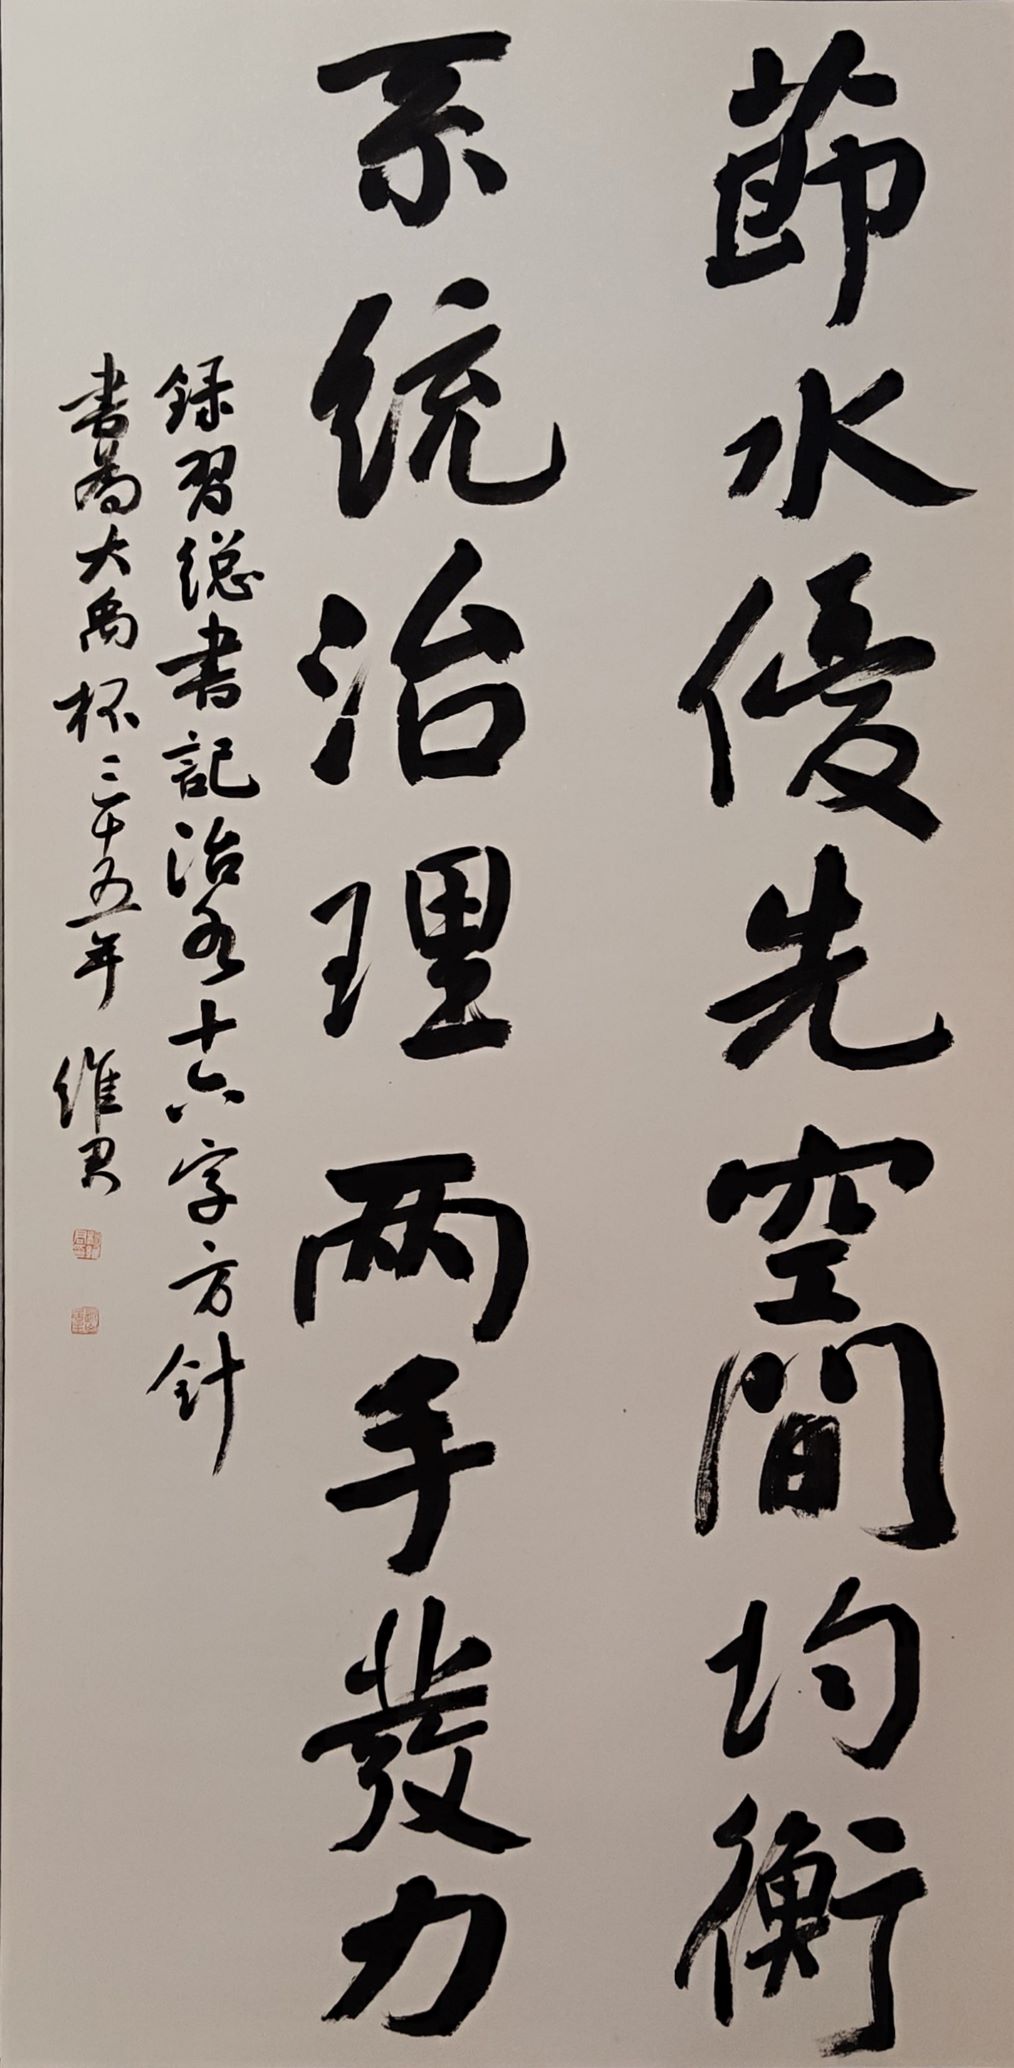 節水優先空間均衡
系統治理两手發力
録習總書記治水十六字方針
書為大禹杯三十五年 維君